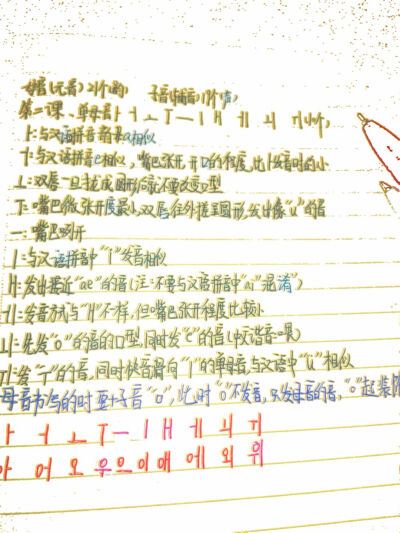 母音(元音)21个的) 子音(辅音)19个
第二课、单母音ㅏ ㅓ ㅗ ㅜ ㅡ ㅣ ㅐ ㅔ ㅚ ㅟ 10个
ㅏ:与汉语拼音a相似
ㅓ:与汉语拼音e相似,嘴巴张开,开口的程度,比ㅏ发音时的小
ㅗ:双唇一旦拢成圆形,就不要改变口型
ㅜ:嘴巴微张开度最小,双唇往外搓圆形,发出像"u"的音
ㅡ:嘴巴咧开
ㅣ:与汉语拼音中"i"发音相似
ㅐ:发出接近"ae"的音(注:不要与汉语拼音中"ai"混淆")
ㅔ:发音方式与"ㅐ"不样,但嘴巴张开程度比较小
ㅚ:先发"o"的音的口型,同时发"e"的音(中文谐音:
ㅟ:发"ㅜ"的音,同时快音滑向"ㅣ"的单母音,与汉语中"ü"相似
母音书写的时要+子音"ㅇ",此时"ㅇ"不发音,只发母音的音,"ㅇ"起装
ㅏ ㅓ ㅗ ㅜ ㅡ ㅣ ㅐ ㅔ ㅚ ㅟ
아 어 오 우 으 이 애 에 외 위